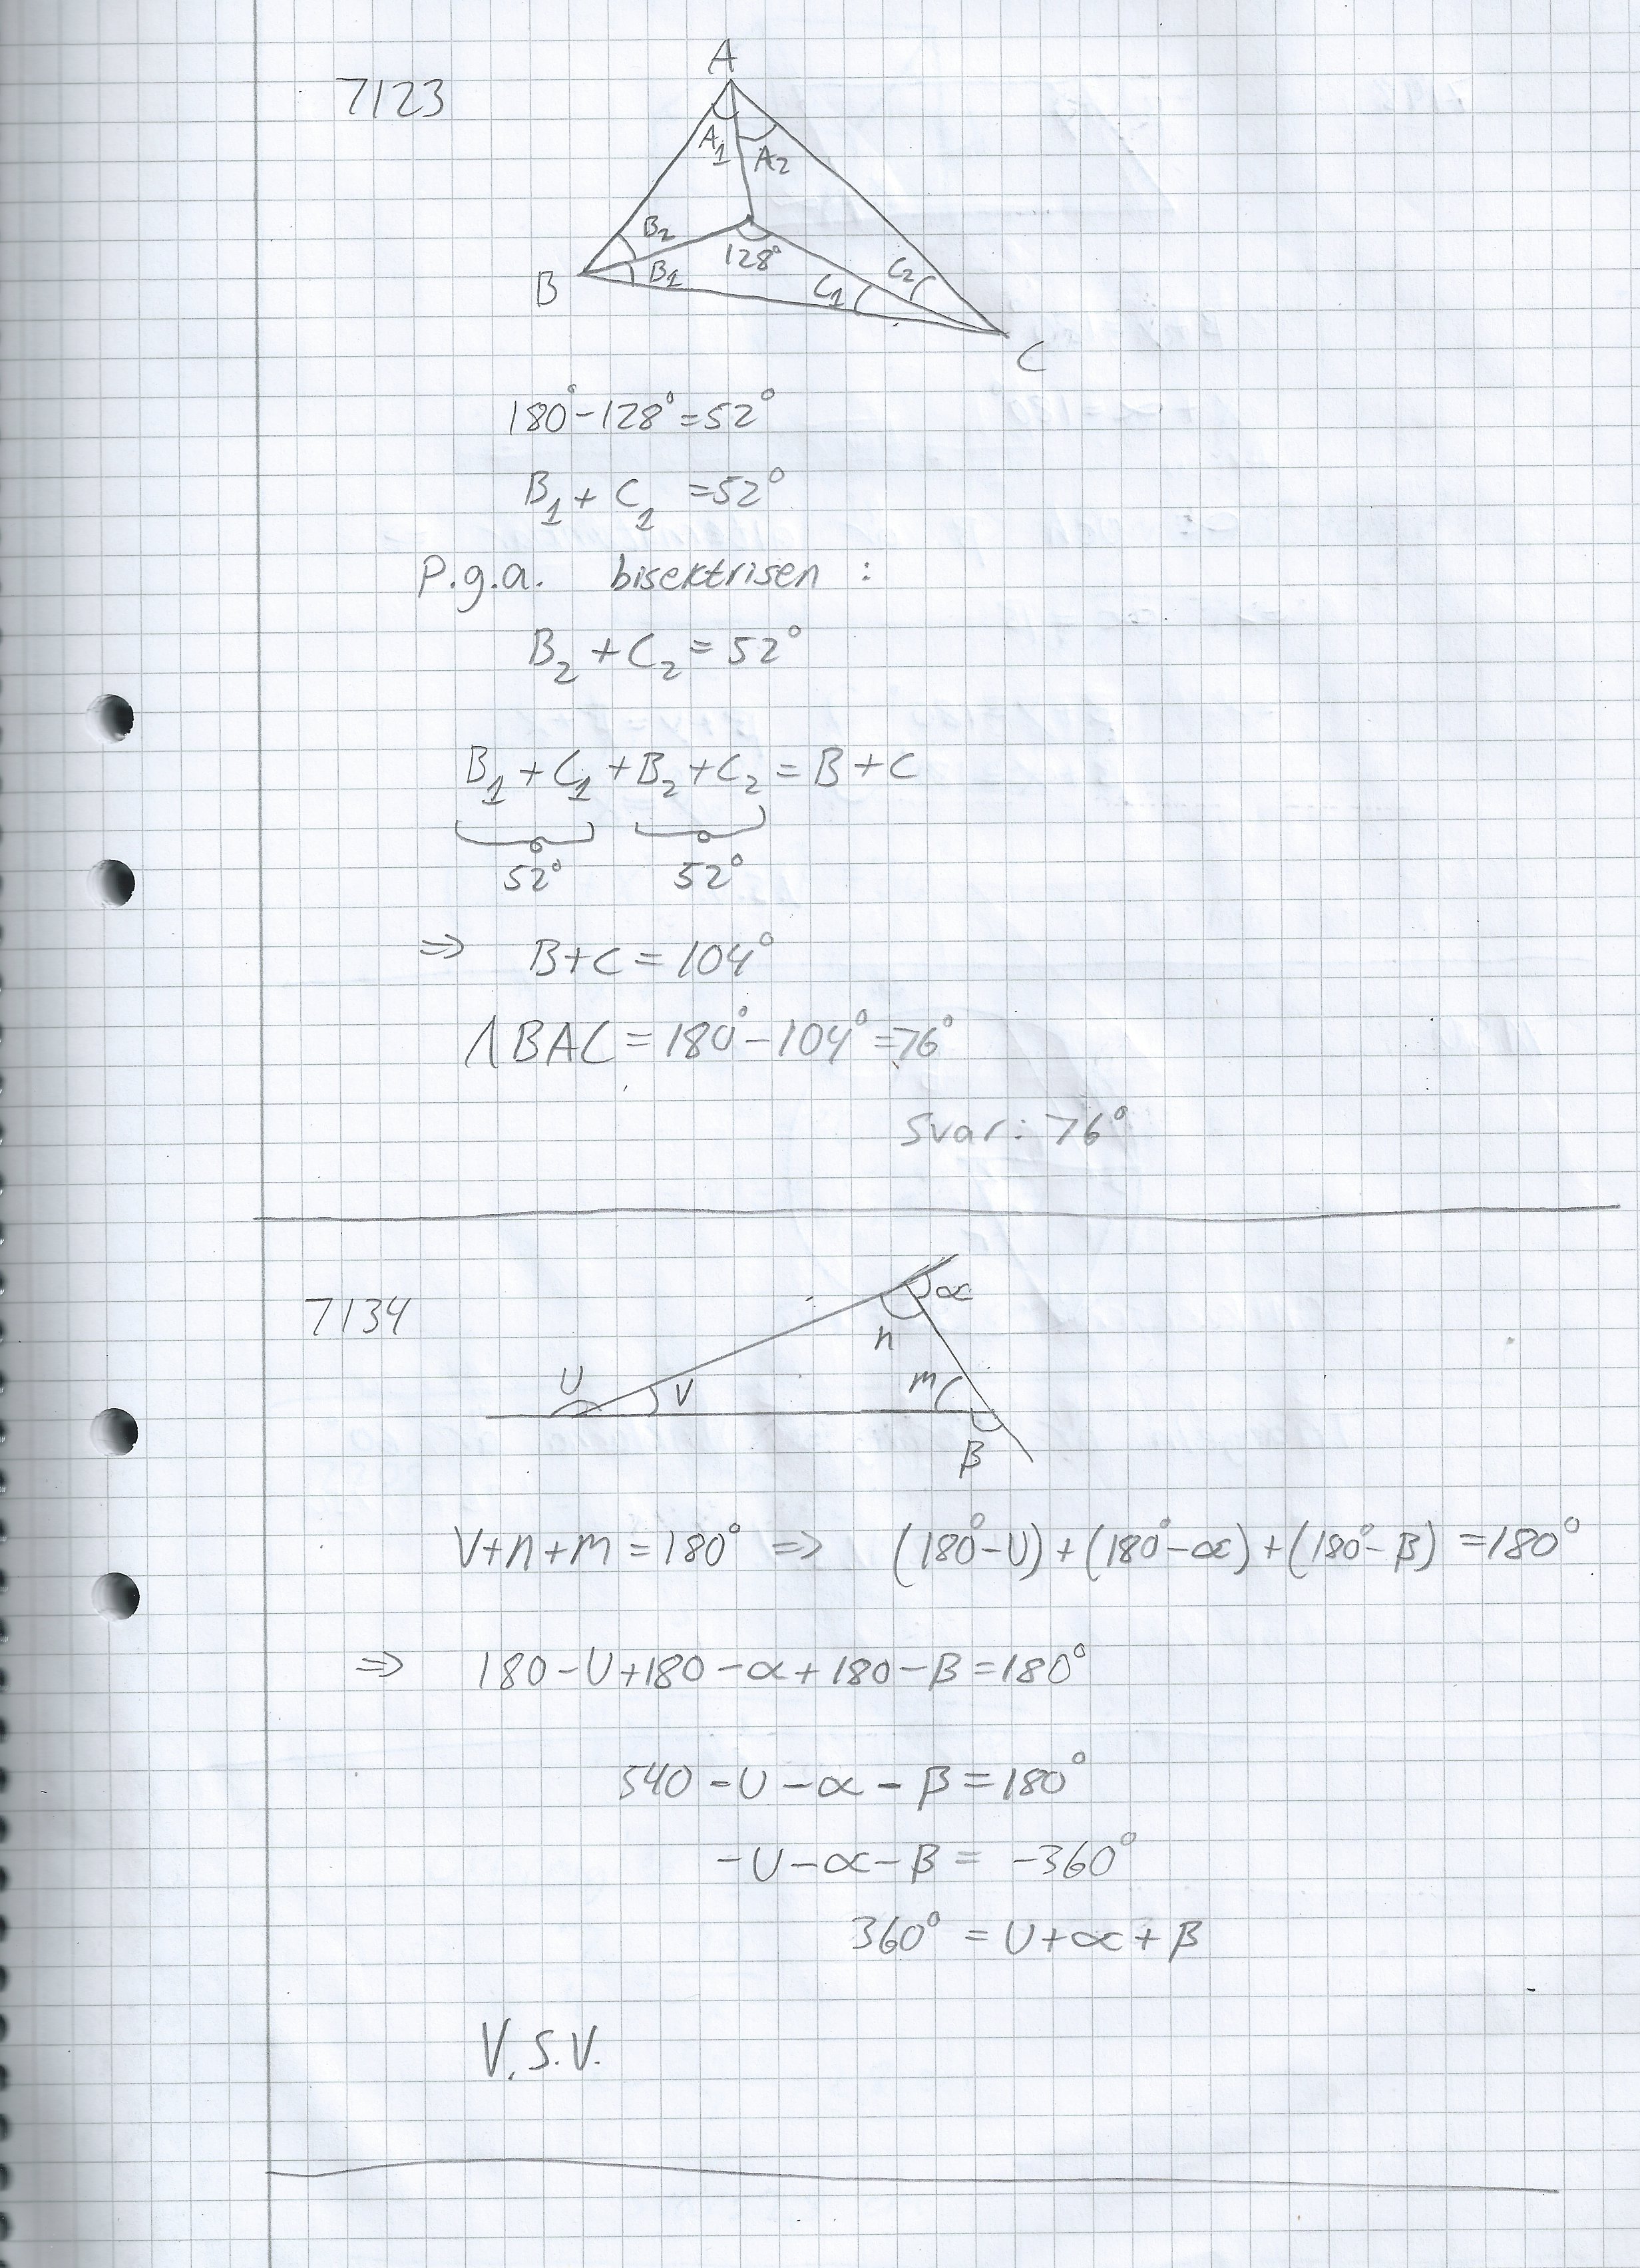 7123
A
A₁ A₂
B₂
B B₁ 128° C₁ C₂
C
180° - 128° = 52°
B₁ + C₁ = 52°
P.g.a. bisektrisen :
B₂ + C₂ = 52°
B₁ + C₁ + B₂ + C₂ = B + C
52° 52°
⇒ B + C = 104°
∧BAC = 180° - 104° = 76°
Svar: 76°
7134
α
n
U V m
β
V + n + m = 180° ⇒ (180° - U) + (180° - α) + (180° - β) = 180°
⇒ 180 - U + 180 - α + 180 - β = 180°
540 - U - α - β = 180°
- U - α - β = -360°
360° = U + α + β
V.S.V.